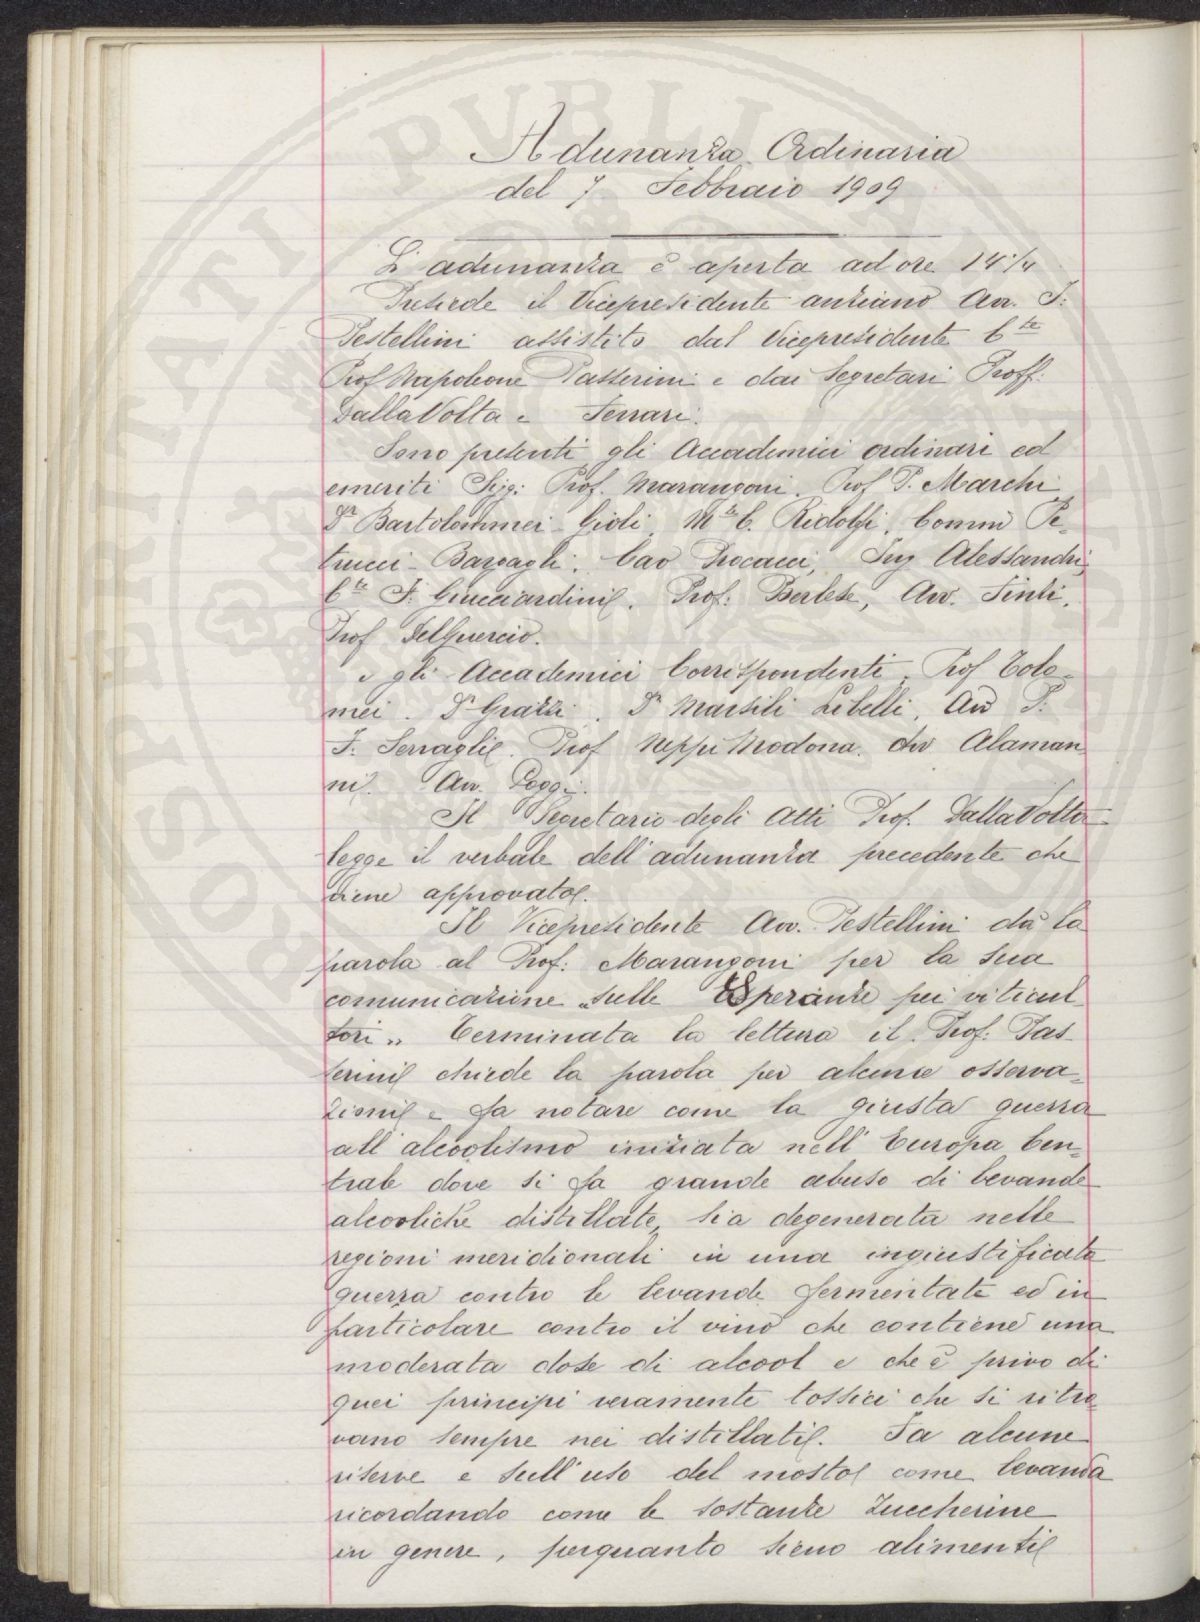 Adunanza Ordinaria
del 7 Febbraio 1909
L'adunanza è aperta ad ore 14 1/4
Presiede il Vicepresidente anziano Avv. I.
Pestellini assistito dal Vicepresidente Cte
Prof Napoleone Passerini e dai Segretari Proff.
Dalla Volta e Ferrari.
Sono presenti gli Accademici ordinari ed
emeriti Sigg: Prof. Marangoni, Prof P. Marchi
Dr Bartolommei Gioli, Mse C. Ridolfi, Comm Pe-
trucci-Bargagli, Cav Procacci, Ing Alessandri,
Cte F. Guicciardini, Prof: Berlese, Avv. Sinli,
Prof DelGuercio.
e gli Accademici Corrispondenti Prof Tolo-
mei. Dr Grazzi. Dr Marsili Libelli, Avv P.
F. Serragli. Prof Neppi Modona. Avv Alaman
ni. Avv. Poggi.
Il Segretario degli Atti Prof. Dalla Volta
legge il verbale dell'adunanza precedente che
viene approvato.
Il Vicepresidente Avv. Pestellini dà la
parola al Prof: Marangoni per la sua
comunicazione „sulle Esperanze pei viticul
tori„ Terminata la lettura il Prof: Pas-
serini chiede la parola per alcune osserva-
zioni e fa notare come la giusta guerra
all'alcoolismo iniziata nell'Europa Cen-
trale dove si fa grande abuso di bevande
alcooliche distillate, sia degenerata nelle
regioni meridionali in una ingiustificata
guerra contro le bevande fermentate ed in
particolare contro il vino che contiene una
moderata dose di alcool e che è privo di
quei principi veramente tossici che si ritro
vano sempre nei distillati. Fa alcune
riserve e sull'uso del mosto come bevanda
ricordando come le sostanze zuccherine
in genere, perquanto sieno alimenti